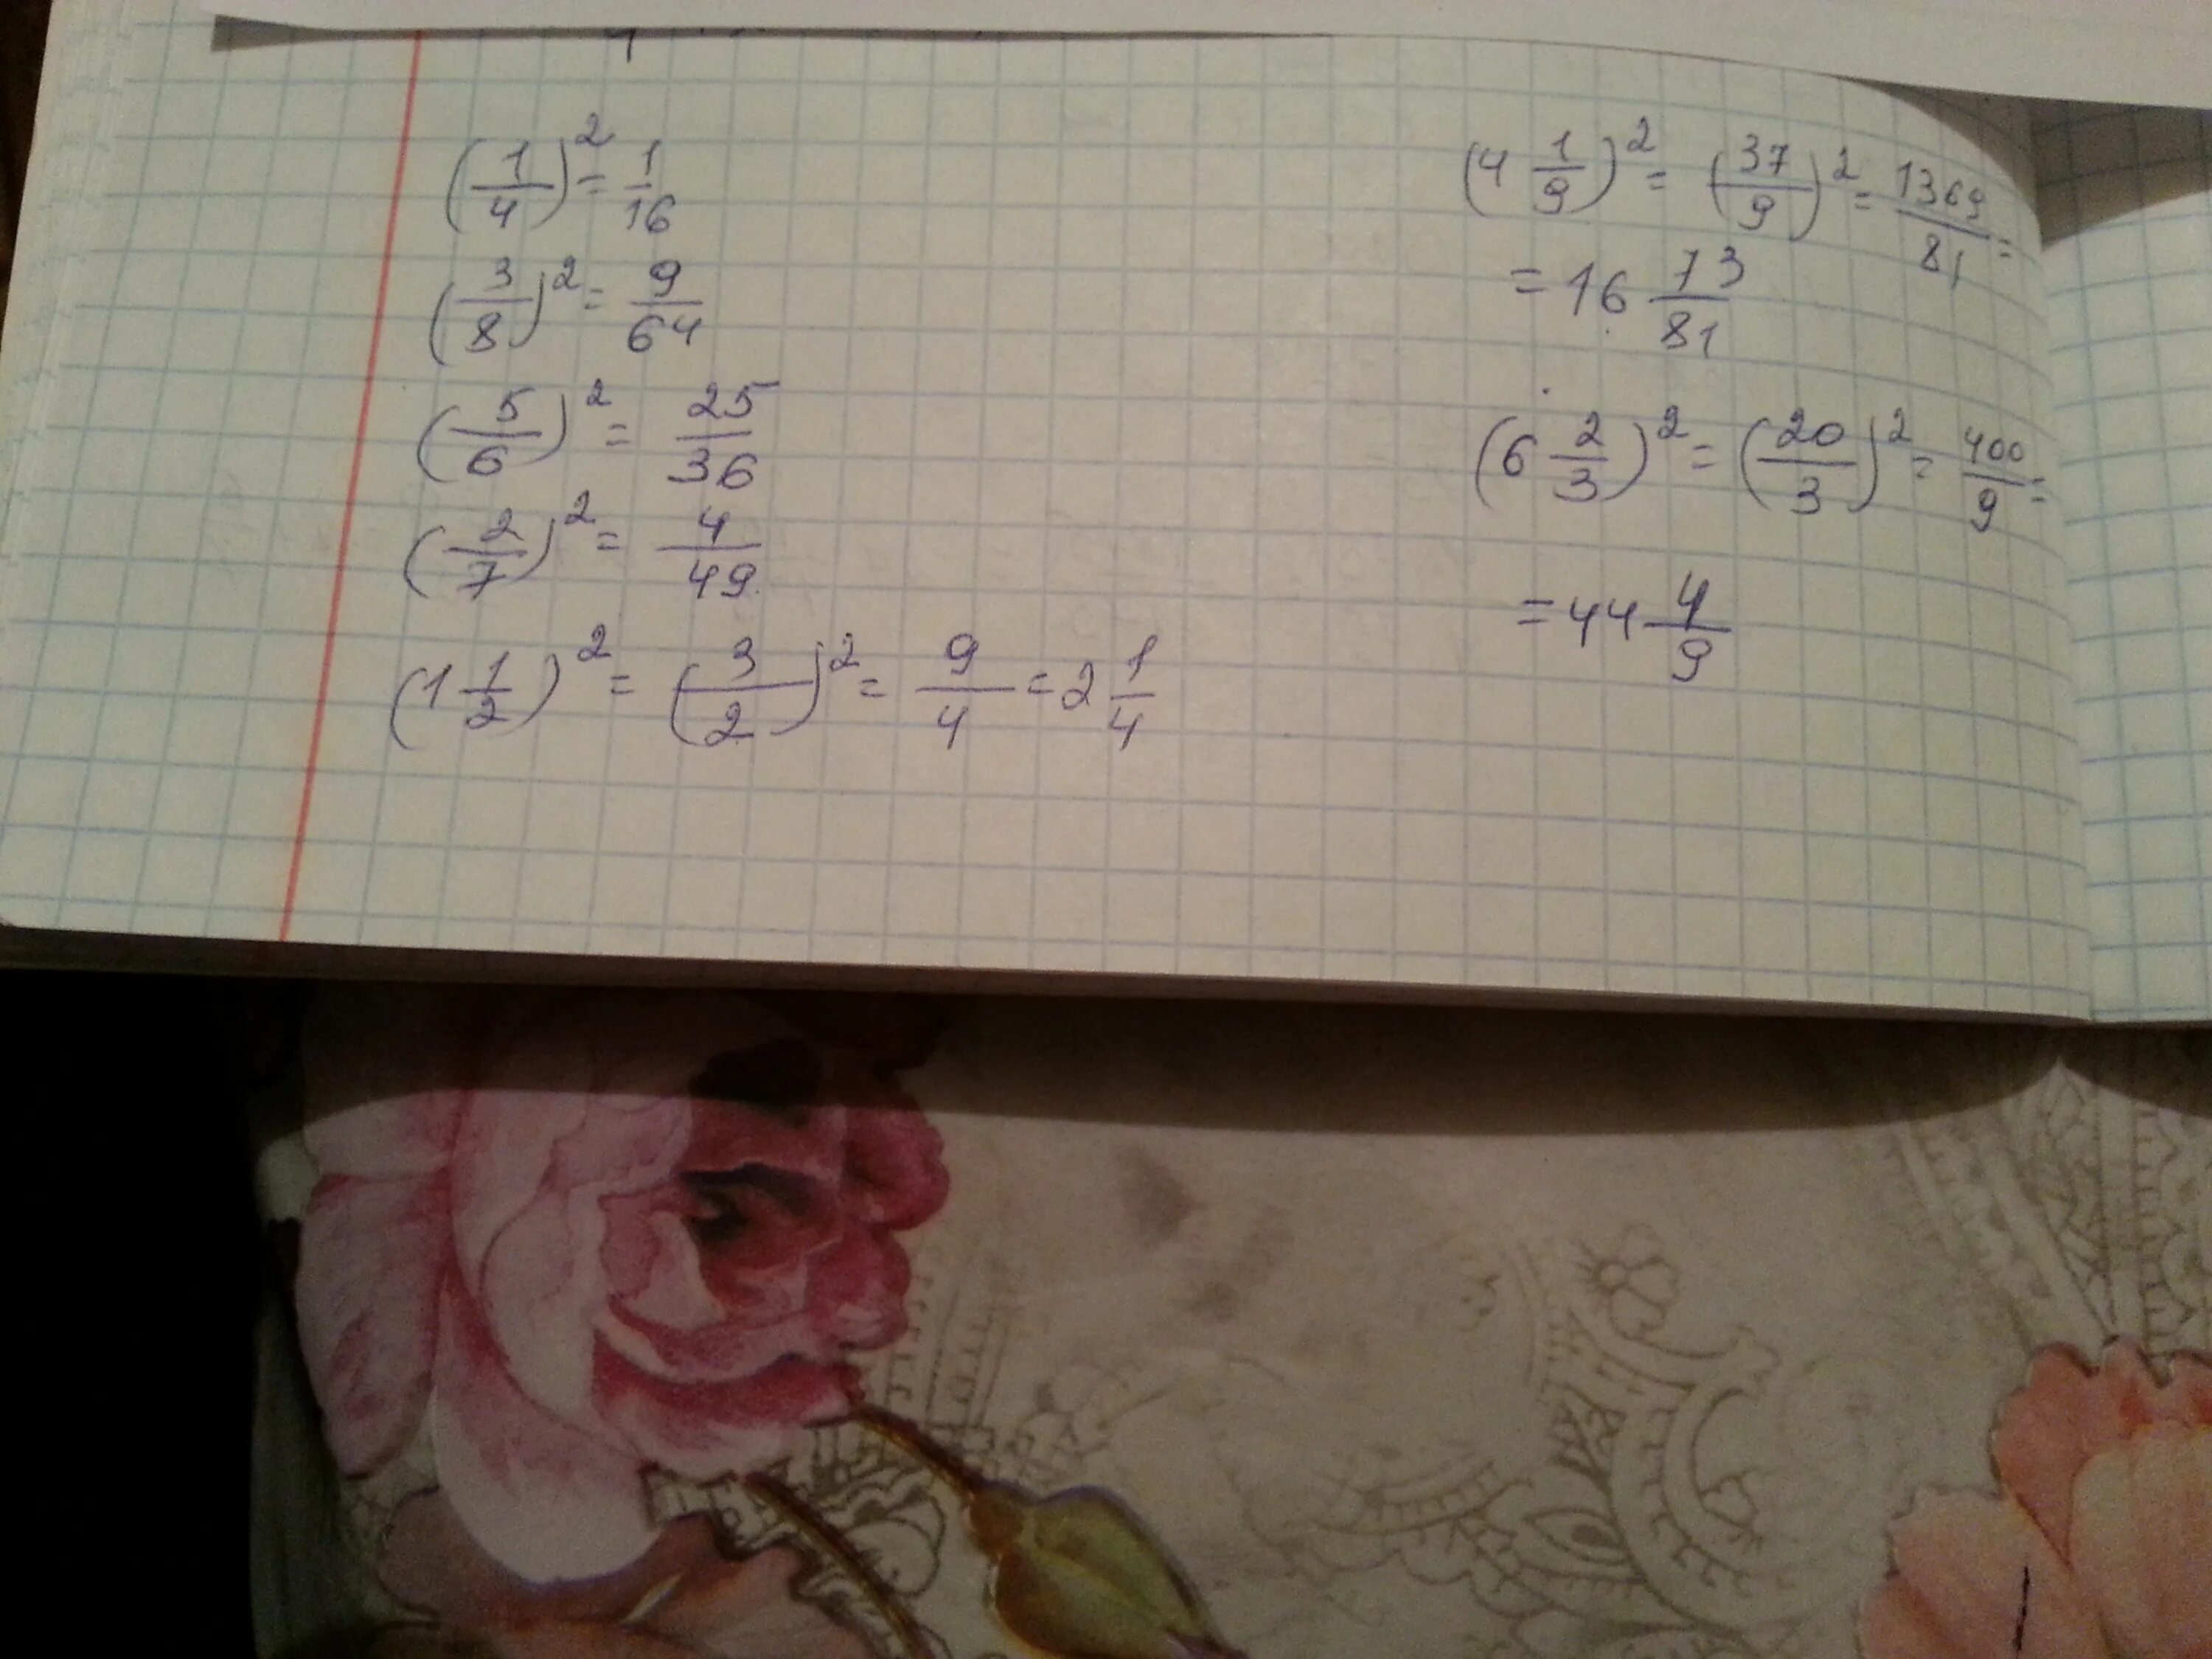 (1/4)² = 1/16
(3/8)² = 9/64
(5/6)² = 25/36
(2/7)² = 4/49
(1 1/2)² = (3/2)² = 9/4 = 2 1/4
(4 1/9)² = (37/9)² = 1369/81 =
= 16 73/81
(6 2/3)² = (20/3)² = 400/9 =
= 44 4/9